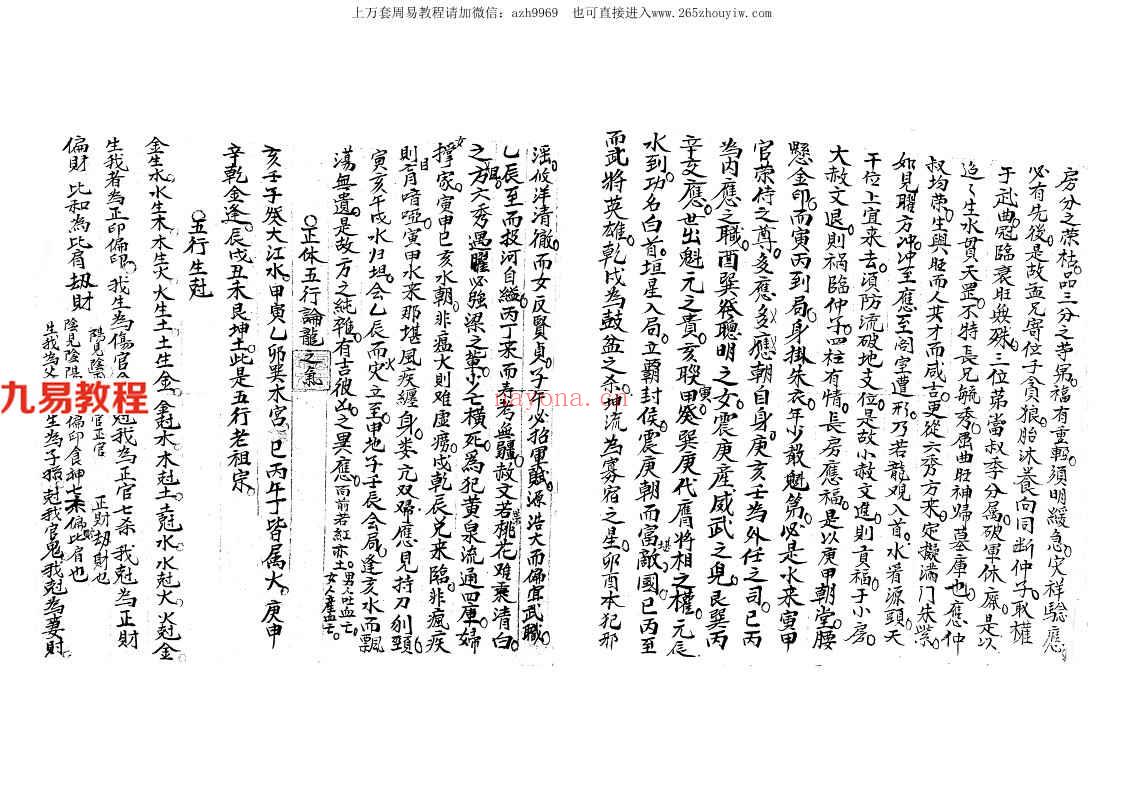 上万套周易教程请加微信：azh9969　也可直接进入www.265zhouyiw.com
房分之荣枯品三分之等第福有重輕須明緩急灾祥驗應
必有先後是故孟兄寄位于貪狼胎沐養向同断仲子取權
于武曲冠臨衰旺無殊三位弟當叔季分属破軍休廉是以
生水貫天罡不特長兄毓秀屈曲旺神歸墓庫也應仲
叔均荣生與旺而人才而咸吉更從六秀方来定擬满门朱紫
如見曜方冲冲至應至阁室遭形乃若龍观入首水看源頭天
干位上宜来去須防流破地支位是故小赦文進則貢福于小房
大赦文退則祸臨仲子四柱有情長房應福是以庚甲朝堂腰
懸金印而寅丙到局身掛朱衣年少殺魁第必是水来寅甲
官荣侍之尊多應多應朝自身庚亥壬為外任之司巳丙
為内應之職酉巽發聰明之女震庚産威武之兒艮巽丙
辛文應世出魁元之貴亥聫甲癸寅巽庚代膺將相之權元辰
水到功名白首垣星入局立霸封侯震庚朝而富敵國巳丙至
而武將英雄乾戌為鼓盆之杀神流為寡宿之星卯酉本犯邪
淫彼洋清徹而女反賢貞子必招軍賊源浩大而偏宜武職
乙辰至而投河自縊丙丁来而壽考無疆赦文若桃花难秉清白
之方六秀遇曜必強梁之輩少亡横死為犯黄泉流通四庫婦
女撑家寅申巳亥水朝非瘟火則难虚痨戌乾辰兌来臨非瘋疾
則盲目喑啞寅甲水来那堪風疾纏身娄亢双歸應見持刀刎頸
寅亥午戌水归坦会乙辰而灾立至申地子壬辰会局逢亥水而飄
荡無遺是故方之純雜有吉彼凶之異應而前若紅亦土男吐血亡女人産血亡
正体五行論龍之氣
亥壬子癸大江水甲寅乙卯巽木宫巳丙午丁皆属火庚申
辛乾金逢辰戌丑未艮坤土此是五行老祖宗
五行生尅
金生水水生木木生火火生土土生金金尅木木尅土土尅水水尅火火尅金
生我者為正印偏印我生為傷官 尅我為正官七杀我尅為正財
偏財比和為比肩劫財
陽見陰 官正官 正財劫財也
陰見陰 偏印食神七杀偏比肩也
生我為父 生為子孫尅我官鬼我尅為妻財
九易教程
nayona.cn